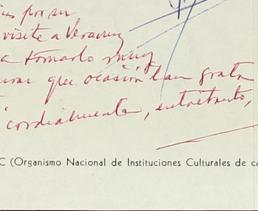 por su
visite a Veracruz
a tomarlo muy
que ocasión tan grata
cordialmente, entretanto,
C (Organismo Nacional de Instituciones Culturales de ca